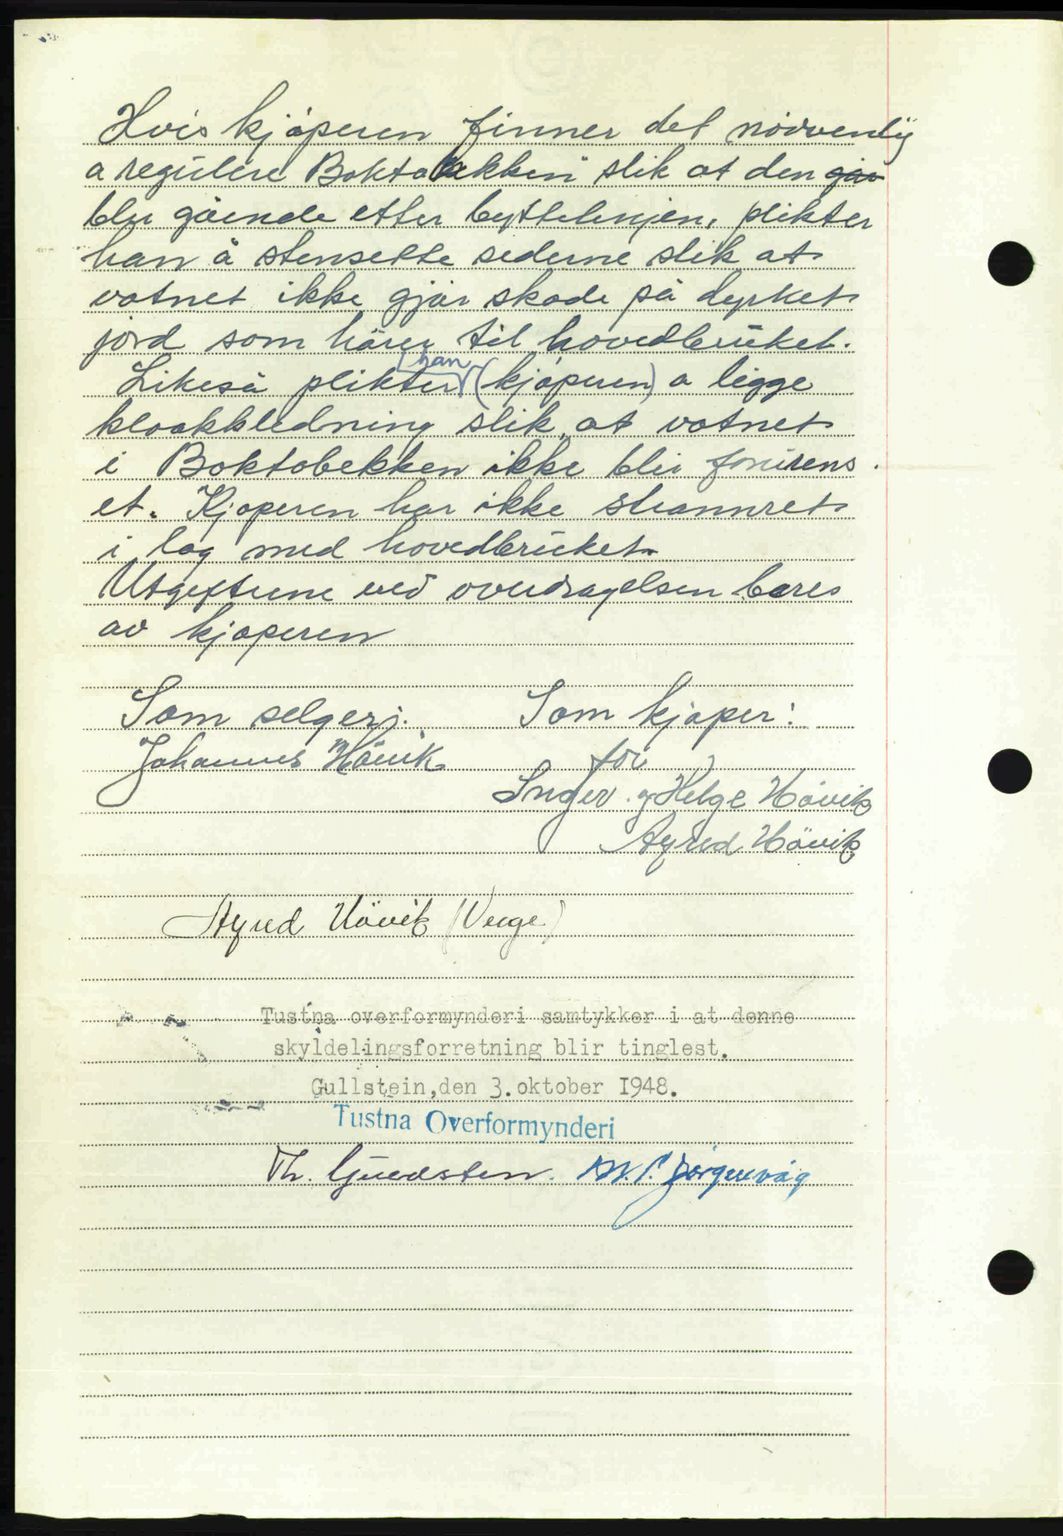 Hvis kjøperen finner det nødvenlig
a regulere Boktobekken slik at den går
blir gående etter byttelinjen, plikter
han å stensette sidene slik at
vatnet ikke gjør skade på dyrket
jord som hører til hovedbruket.
Likeså plikter han (kjøperen) a legge
kloakkledning slik at vatnet
i Boktobekken ikke blir forurens
et. Kjøperen har ikke strannret
i lag med hovedbruket
Utgiftene ved overdragelsen bæres
av kjøperen
Som selger: Som kjøper:
Johannes Hövik for
Inger og Helge Hövik
Hövik
Hövik (Verge)
Tustna overformynderi samtykker i at denne
skyldelingsforretning blir tinglest.
Gullstein,den 3.oktober 1948.
Tustna Overformynderi
Th. Jörgenvåg